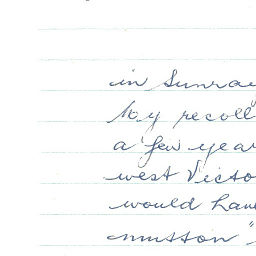 in Sunray
My recoll
a few year
west Victo
would hav
mutton"